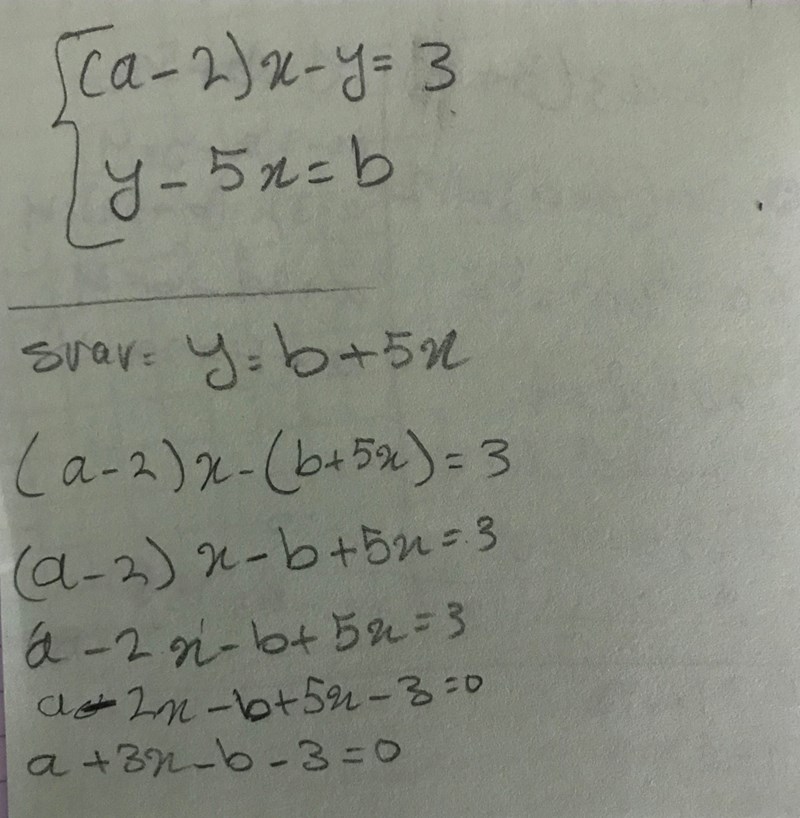 (a-2)x-y=3
y-5x=b
svar= y=b+5x
(a-2)x-(b+5x)=3
(a-2)x-b+5x=3
a-2x-b+5x=3
a-2x-b+5x-3=0
a+3x-b-3=0